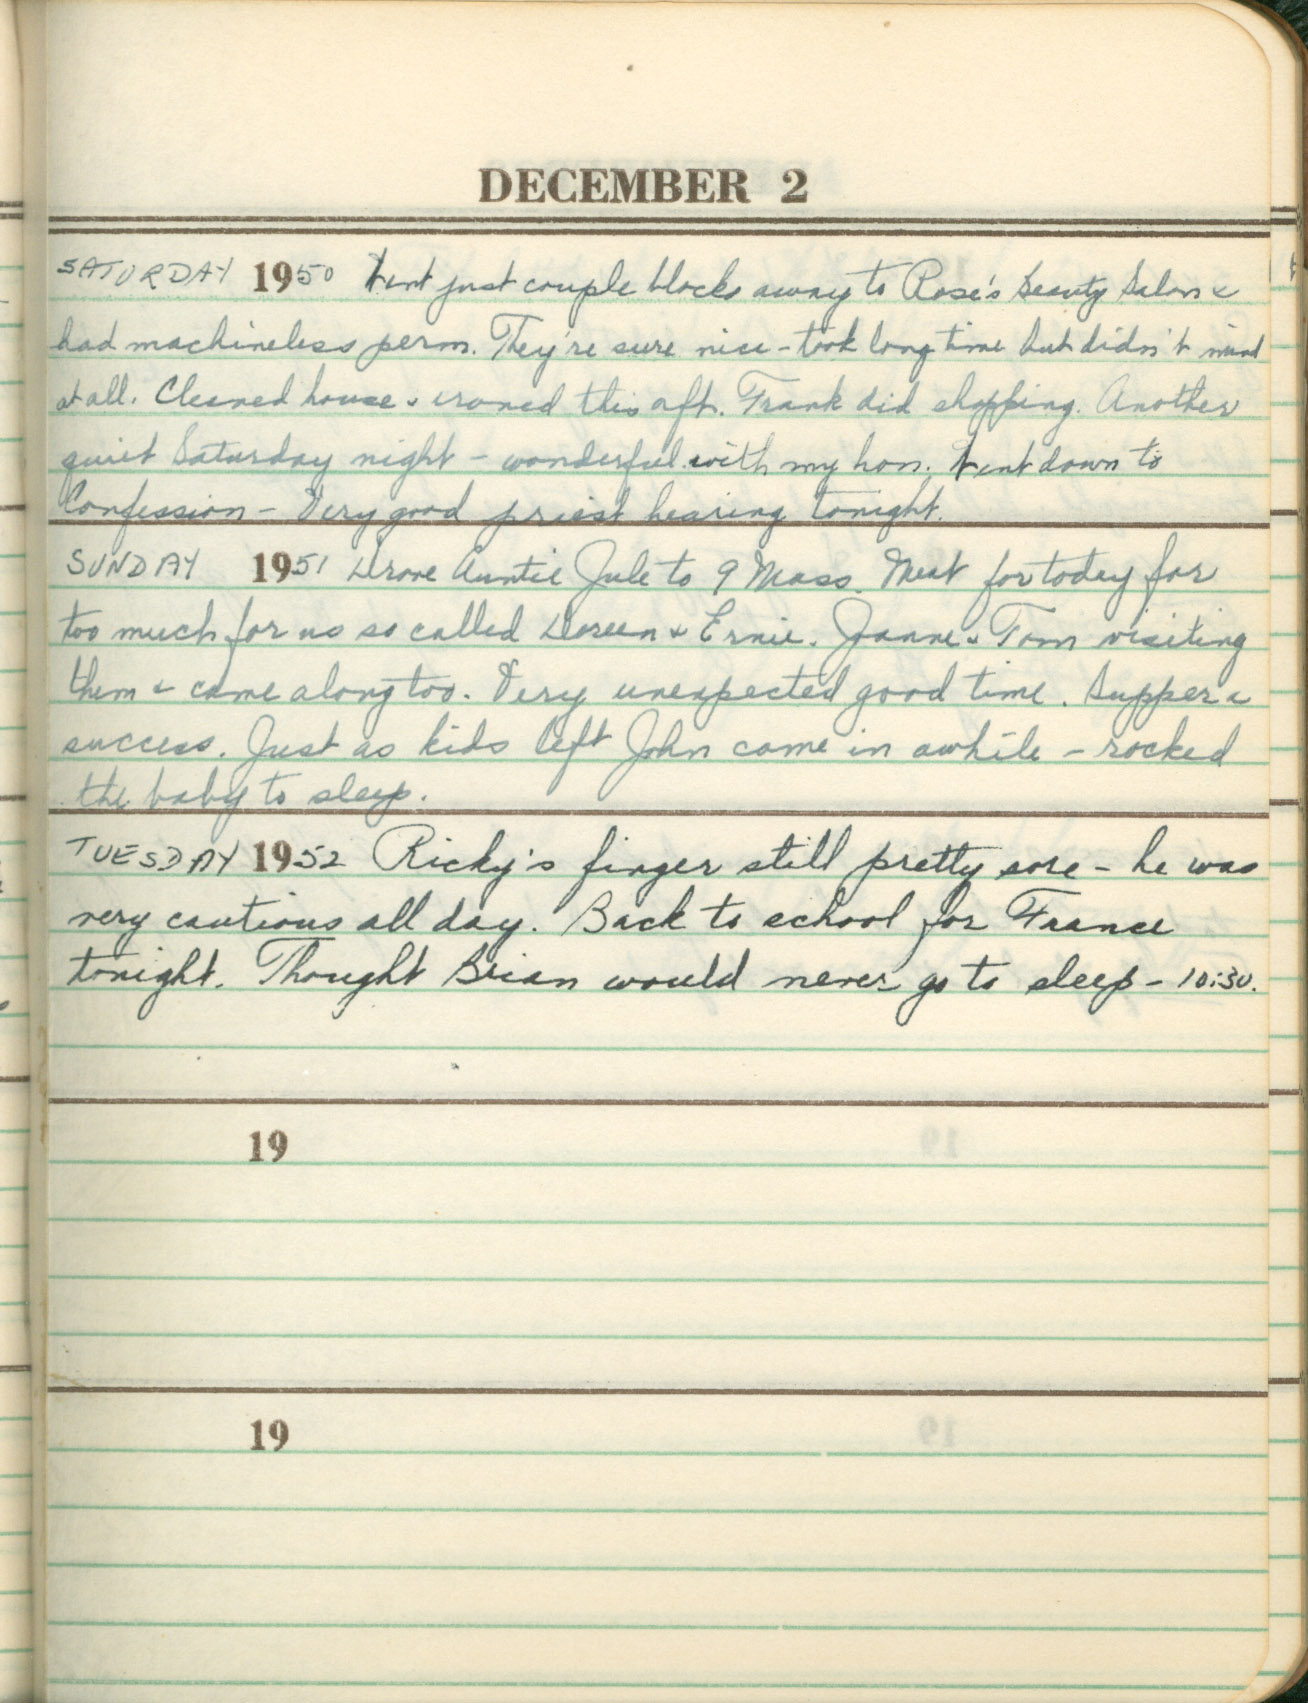 DECEMBER 2
SATURDAY 1950 Went just couple blocks away to Rose's Beauty Salon &
had machineless perm. They're sure nice - took long time but didn't mind
at all. Cleaned house & ironed this aft. Frank did shopping. Another
quiet Saturday night - wonderful with my hon. Went down to
Confession - Very good priest hearing tonight.
SUNDAY 1951 Drove Auntie Jule to 9 Mass. Meat for today far
too much for us so called Doreen & Ernie. Joanne & Tom visiting
them & came along too. Very unexpected good time. Supper a
success. Just as kids left John came in awhile - rocked
the baby to sleep.
TUESDAY 1952 Ricky's finger still pretty sore - he was
very cautious all day. Back to school for France
tonight. Thought Brian would never go to sleep - 10:30.
19
19